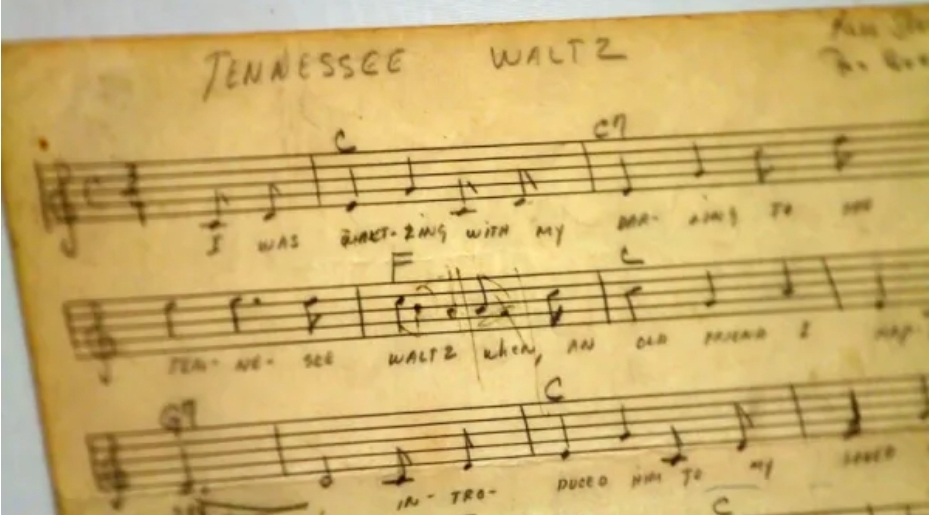 TENNESSEE WALTZ
C C7
I WAS WALT-ZING WITH MY DAR- LING TO THE
F C
TEN- NE- SEE WALTZ when, AN OLD FRIEND I HAP-
G7 C
IN- TRO- DUCED HIM TO MY LOVED
C